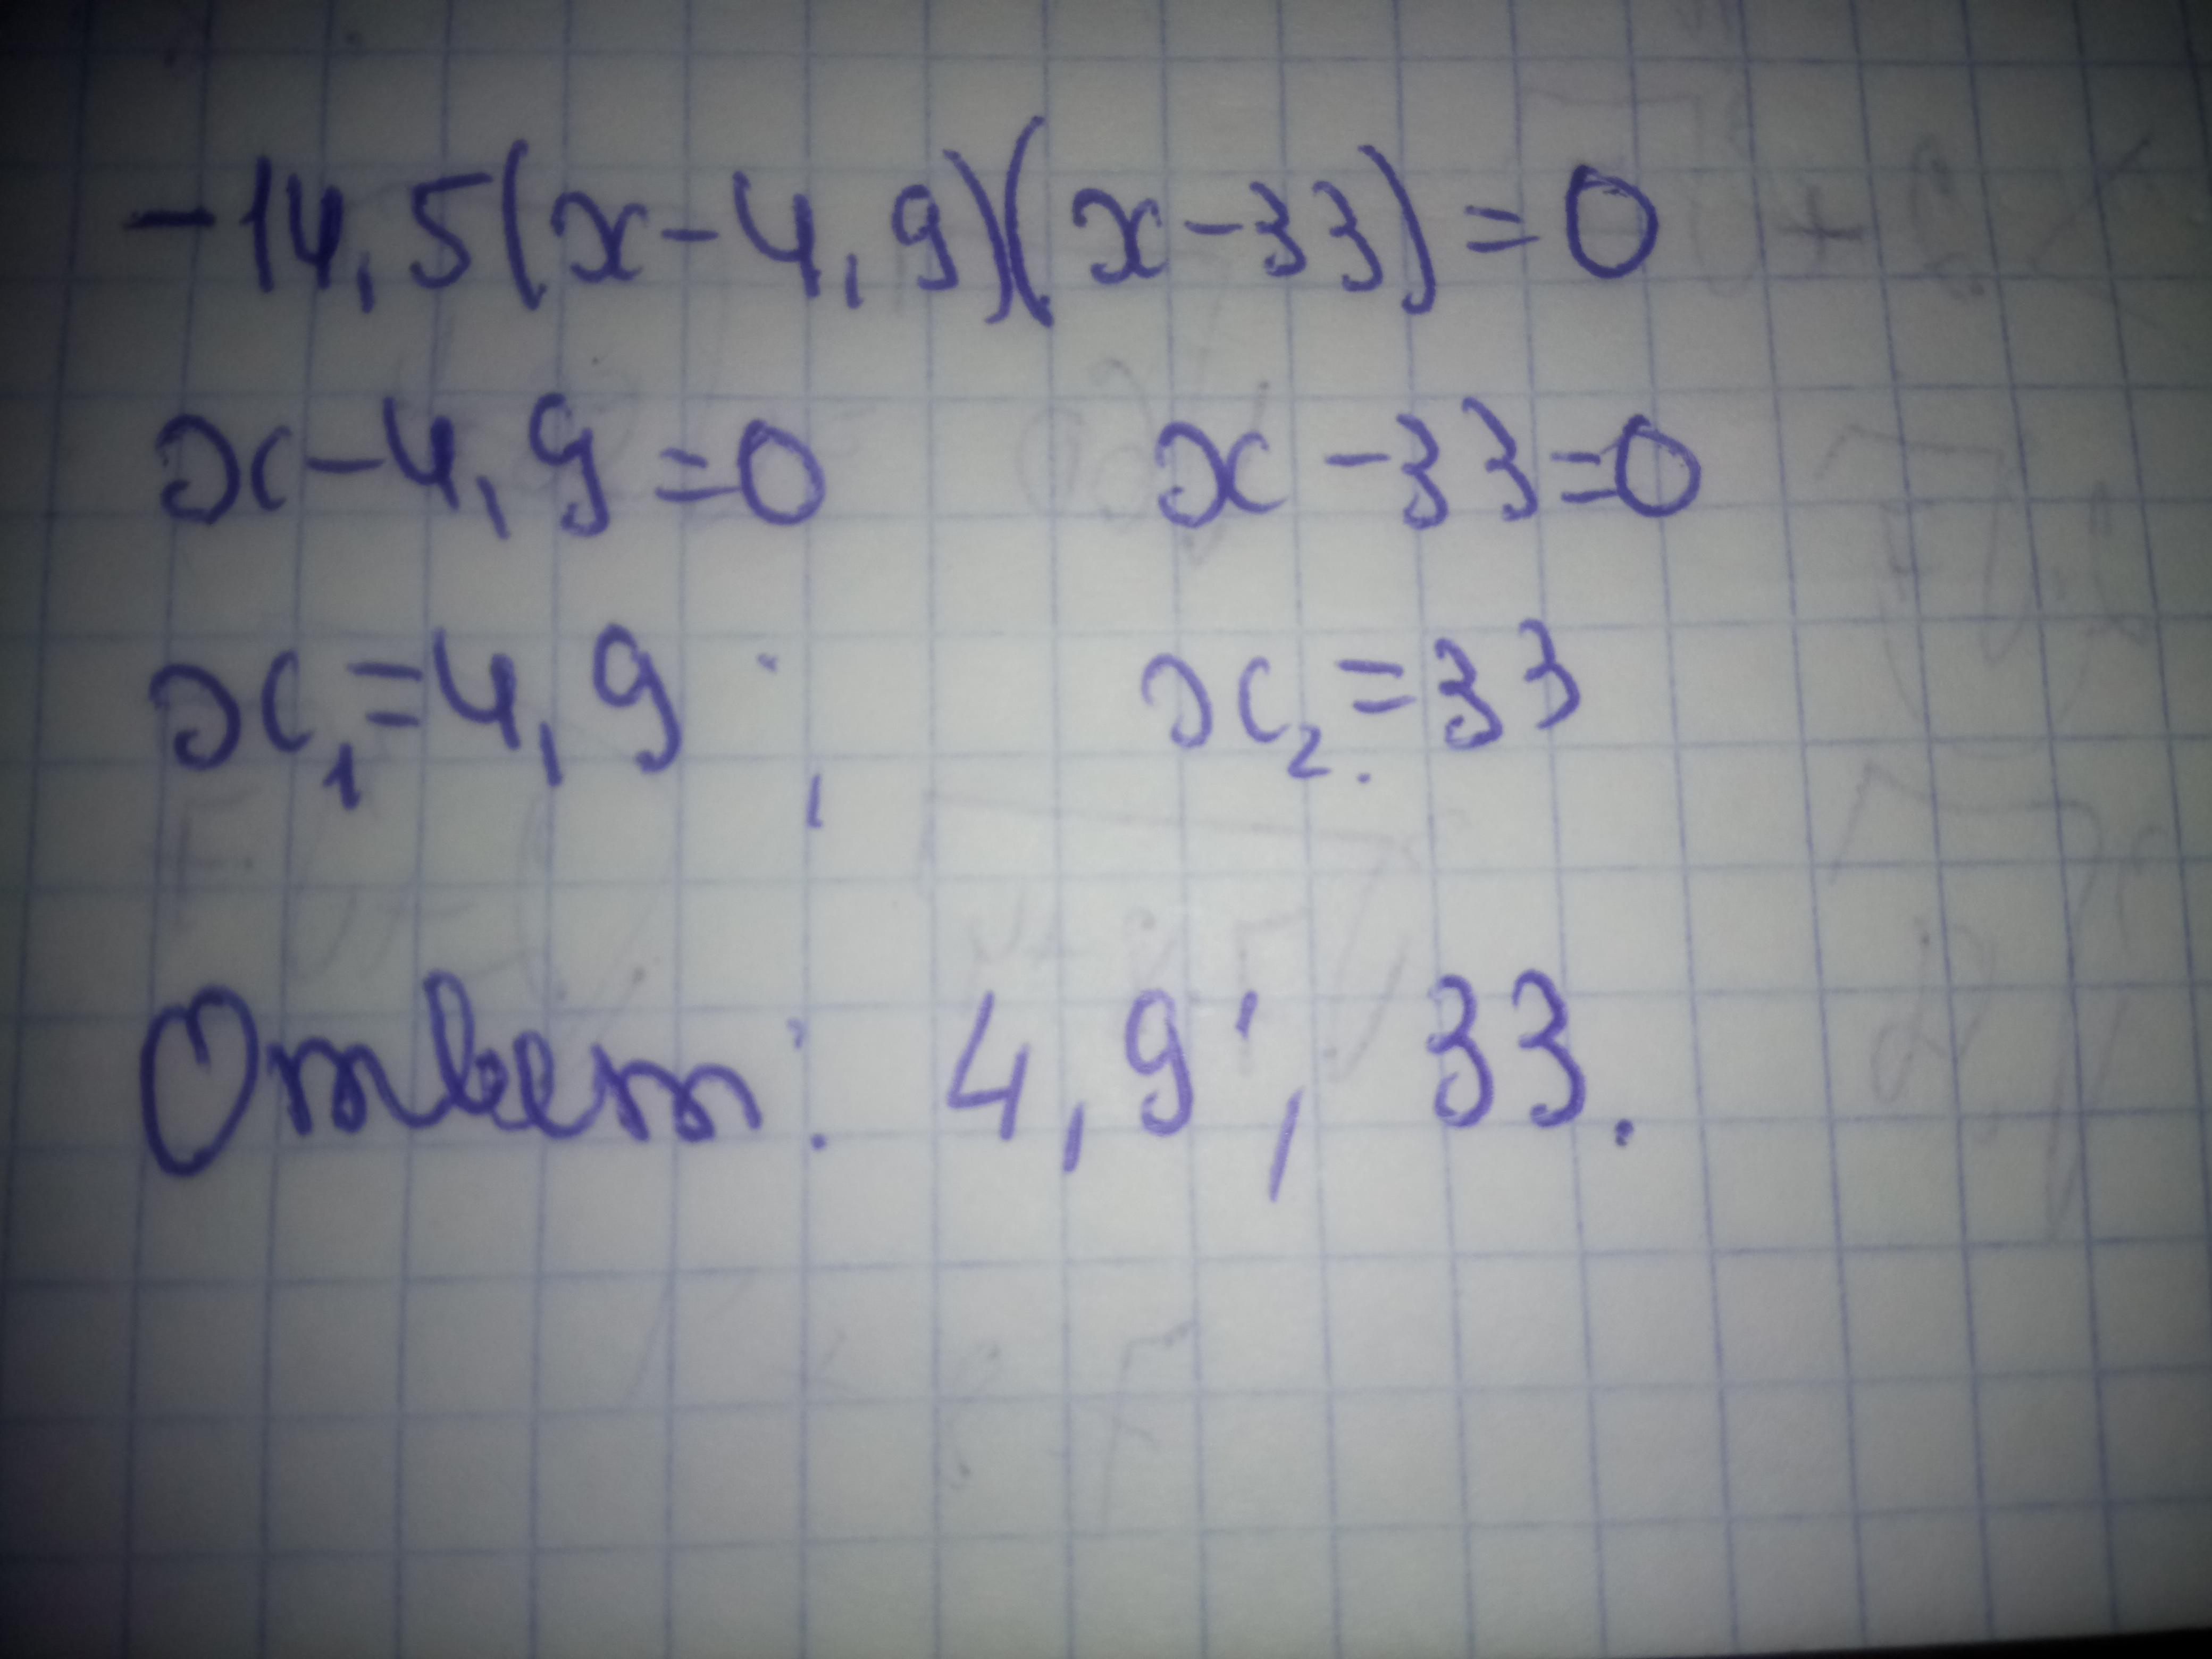 -14,5(x-4,9)(x-33)=0
x-4,9=0 x-33=0
x₁=4,9; x₂=33
Ответ: 4,9; 33.